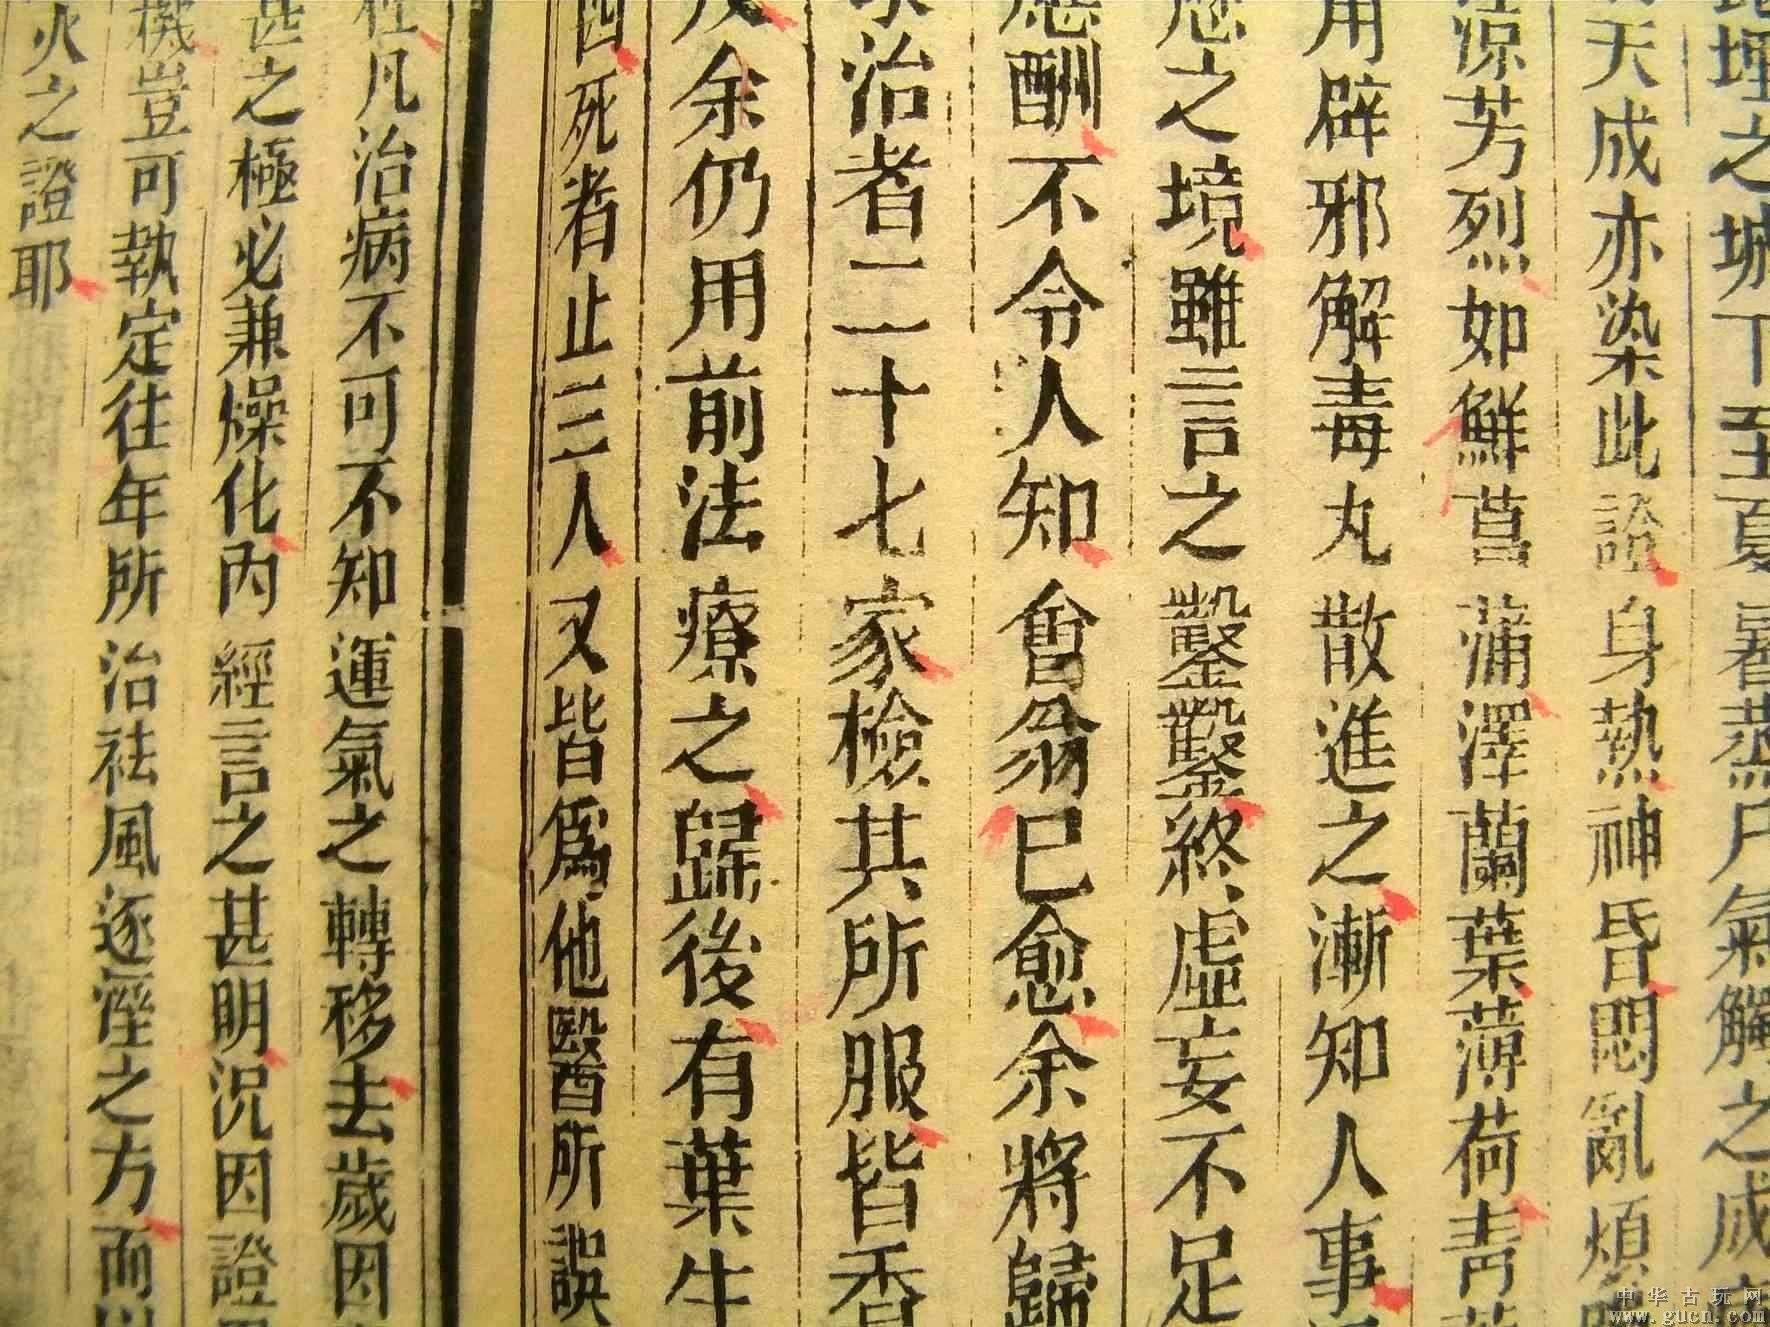 埋之城下至夏暑蒸尸氣觸之成
天成亦染此證身熱神昏悶亂煩
涼芳烈如鮮菖蒲澤蘭葉薄荷青
用辟邪解毒丸散進之漸知人事
之境雖言之鑿鑿終虛妄不足
應酬不令人知會翁已愈余將歸
治者二十七家檢其所服皆香
余仍用前法療之歸後有葉生
四死者止三人又皆為他醫所誤
凡治病不可不知運氣之轉移去歲因
甚之極必兼燥化內經言之甚明況因證
機豈可執定往年所治祛風逐溼之方而以
火之證耶
中华古玩网
www.gucn.com